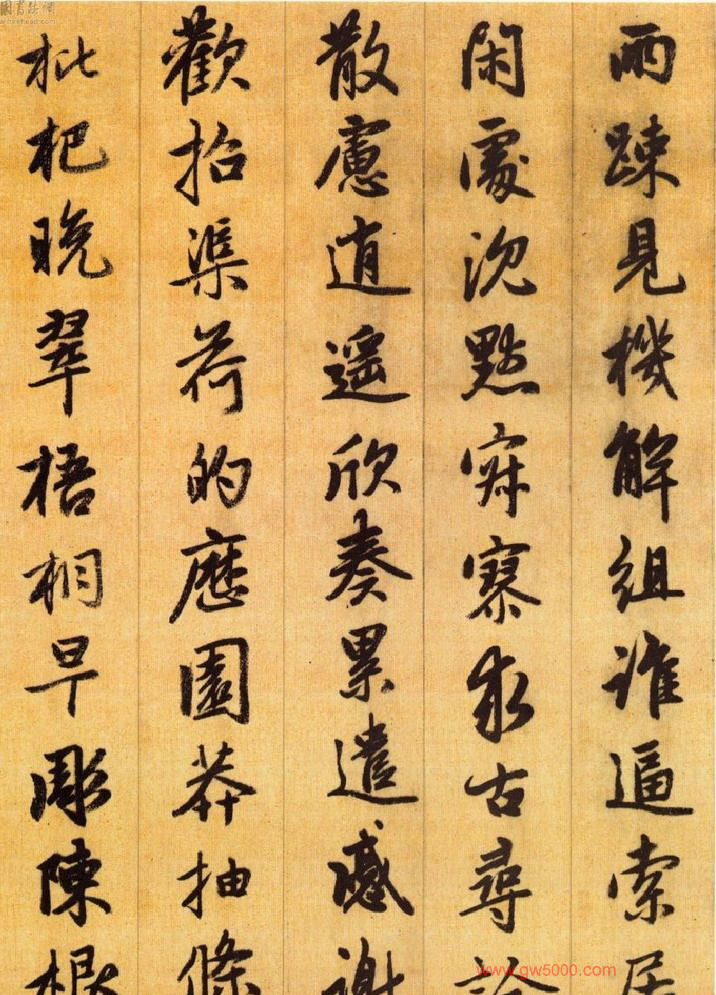 兩踈見機解組誰逼索居
閑處沉默寂寥求古尋論
散慮逍遙欣奏累遣慼謝
歡招渠荷的歷園莽抽條
枇杷晚翠梧桐早彫陳根
www.gw5000.com